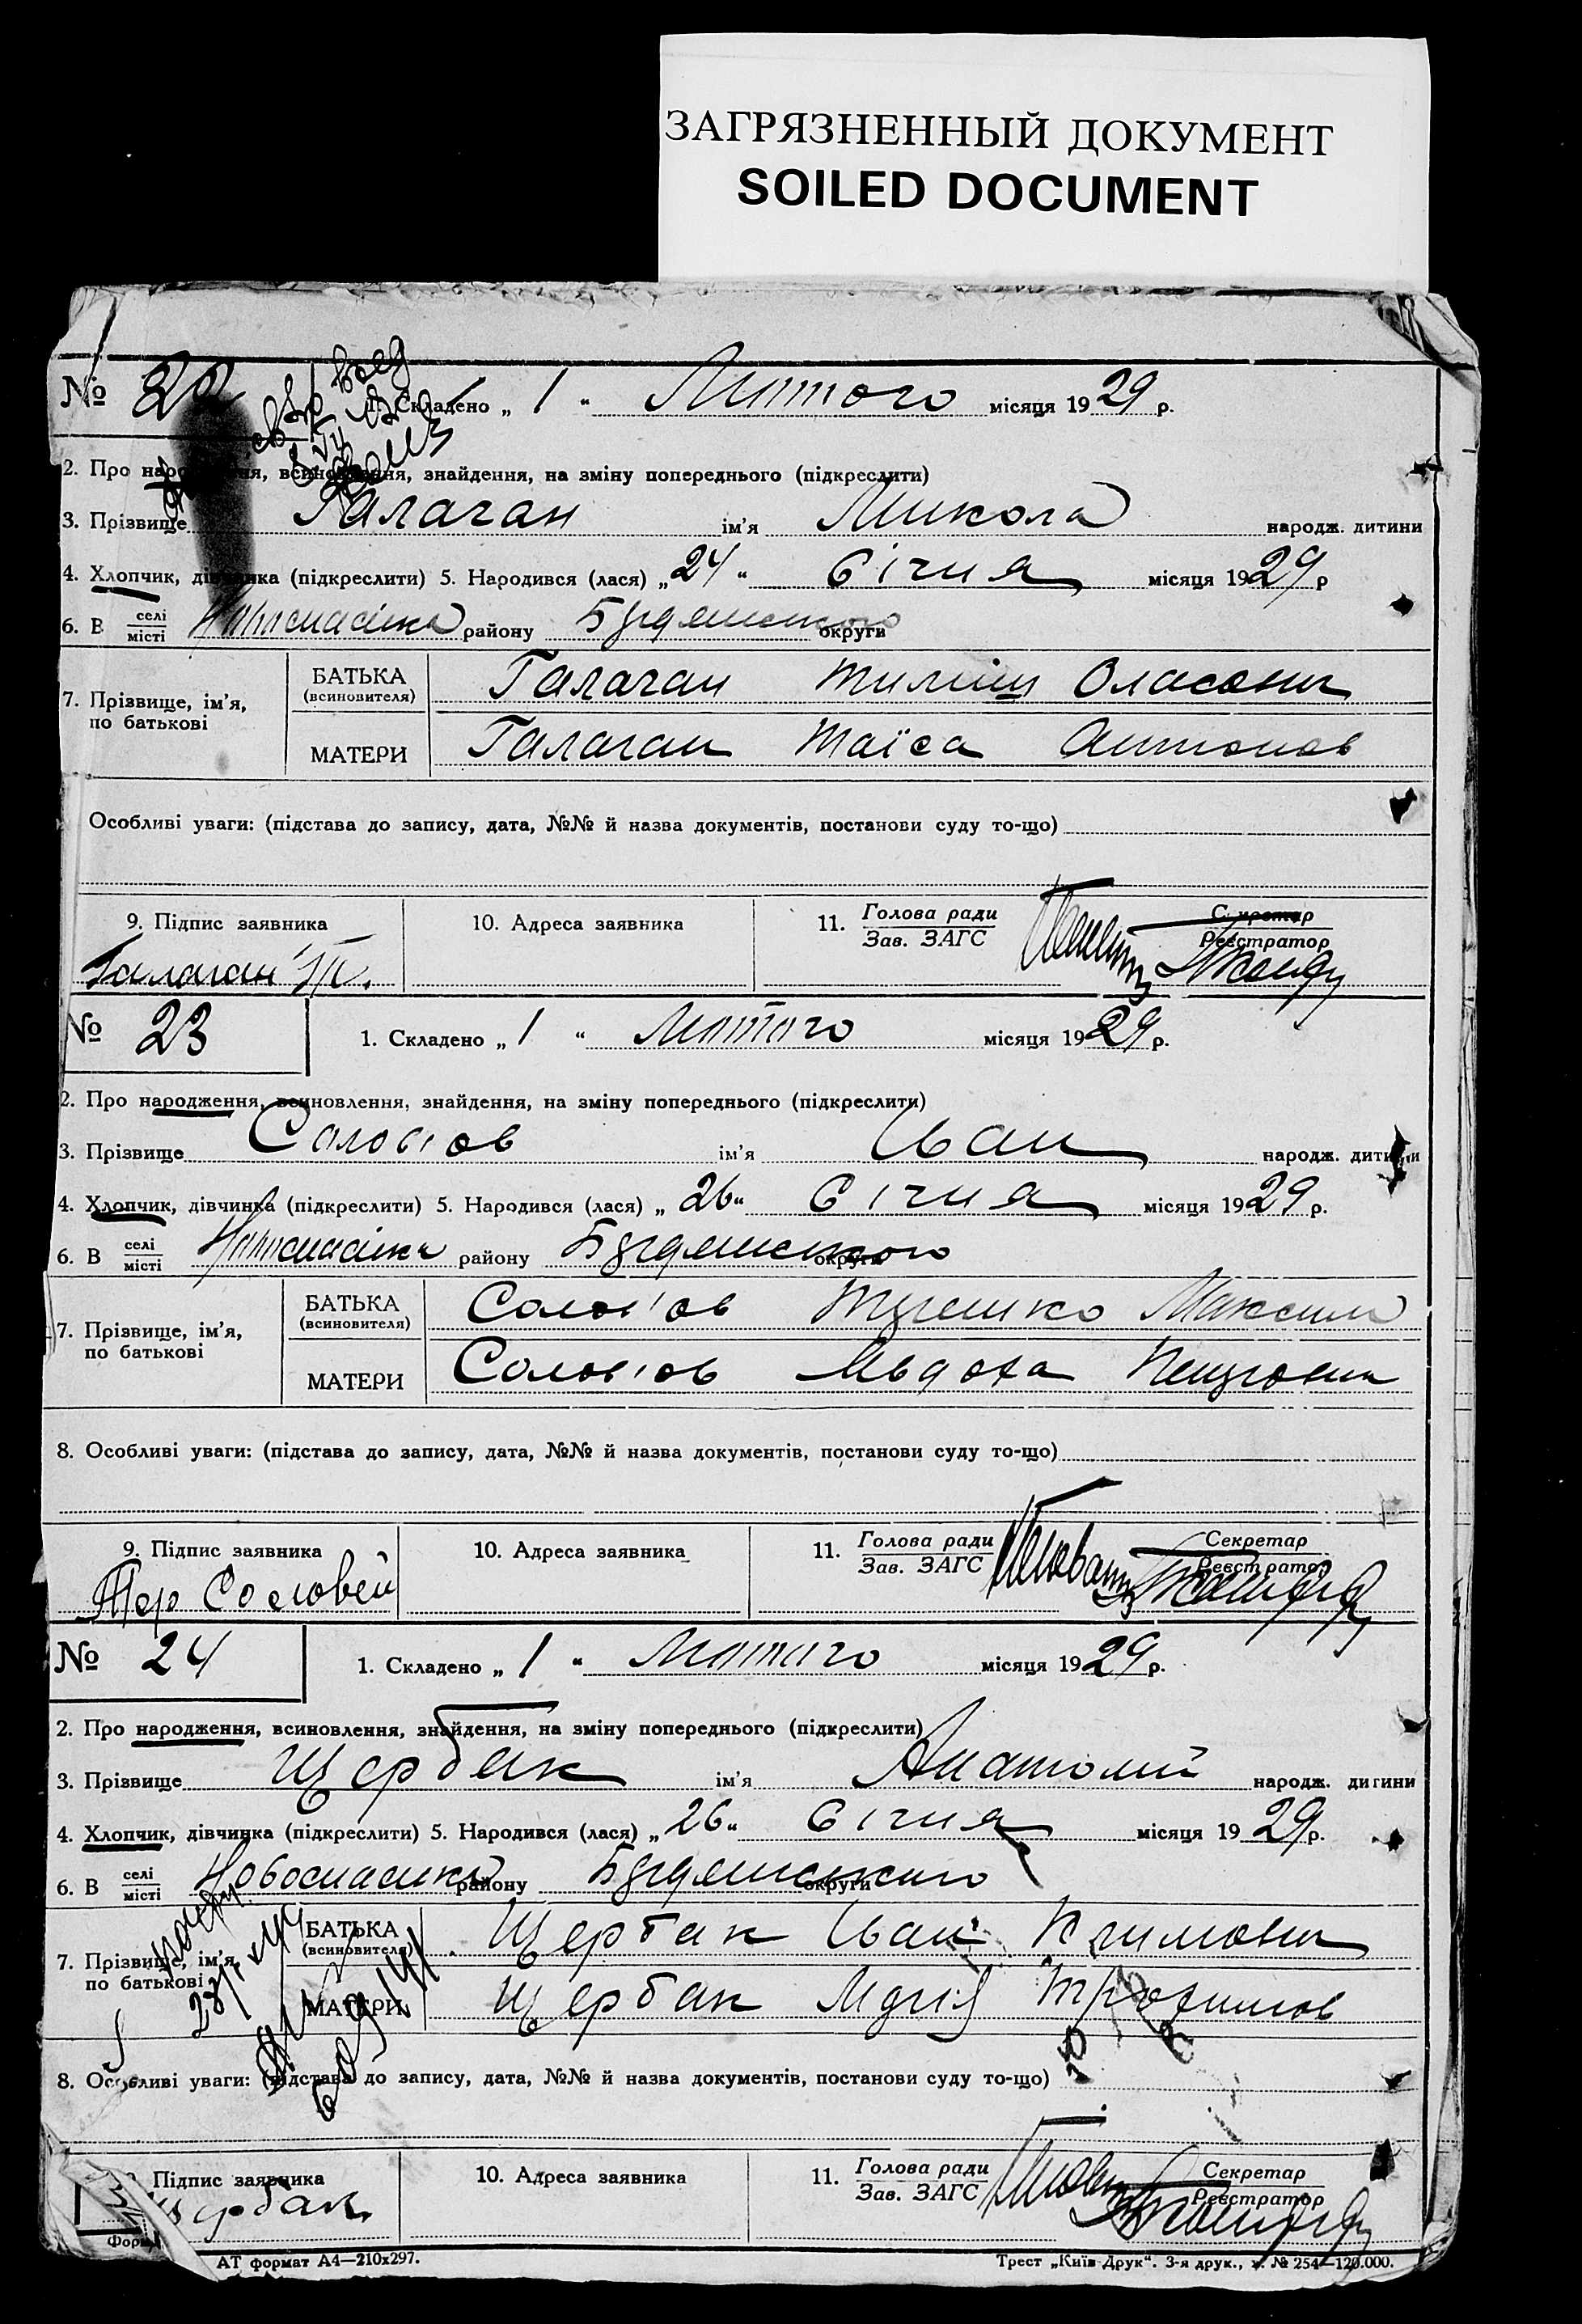 ЗАГРЯЗНЕННЫЙ ДОКУМЕНТ
SOILED DOCUMENT
№ 22 1. Складено „ 1 “ Лютого місяця 1929 р.
2. Про народження, всиновлення, знайдення, на зміну попереднього (підкреслити)
3. Прізвище Галаган ім'я Микола народж. дитини
4. Хлопчик, дівчинка (підкреслити) 5. Народився (лася) „ 24 “ Січня місяця 1929 р
6. В селі місті Новоспасівка району округи
7. Прізвище, ім'я, по батькові
БАТЬКА (всиновителя) Галаган Власович
МАТЕРИ Галаган Таїса Антонов
Особливі уваги: (підстава до запису, дата, №№ й назва документів, постанови суду то-що)
9. Підпис заявника 10. Адреса заявника 11. Голова ради Зав. ЗАГС Секретар Реєстратор
Галаган
№ 23 1. Складено „ 1 “ Лютого місяця 1929 р.
2. Про народження, всиновлення, знайдення, на зміну попереднього (підкреслити)
3. Прізвище Солов'ов ім'я Іван народж. дитини
4. Хлопчик, дівчинка (підкреслити) 5. Народився (лася) „ 26 “ Січня місяця 1929 р.
6. В селі місті Новоспасівка району округи
7. Прізвище, ім'я, по батькові
БАТЬКА (всиновителя) Солов'ов Максим
МАТЕРИ Солов'ов Явдоха
8. Особливі уваги: (підстава до запису, дата, №№ й назва документів, постанови суду то-що)
9. Підпис заявника 10. Адреса заявника 11. Голова ради Зав. ЗАГС Секретар Реєстратор
Соловей
№ 24 1. Складено „ 1 “ Лютого місяця 1929 р.
2. Про народження, всиновлення, знайдення, на зміну попереднього (підкреслити)
3. Прізвище Щербак ім'я Анатолій народж. дитини
4. Хлопчик, дівчинка (підкреслити) 5. Народився (лася) „ 26 “ Січня місяця 1929 р.
6. В селі місті Новоспасівка району округи
7. Прізвище, ім'я, по батькові
БАТЬКА (всиновителя) Щербак Іван Климович
МАТЕРИ Щербак Трохимов
8. Особливі уваги: (підстава до запису, дата, №№ й назва документів, постанови суду то-що)
Підпис заявника 10. Адреса заявника 11. Голова ради Зав. ЗАГС Секретар Реєстратор
Щербак
АТ формат А4—210х297. Трест „Київ-Друк“. 3-я друк., з. № 254—120.000.